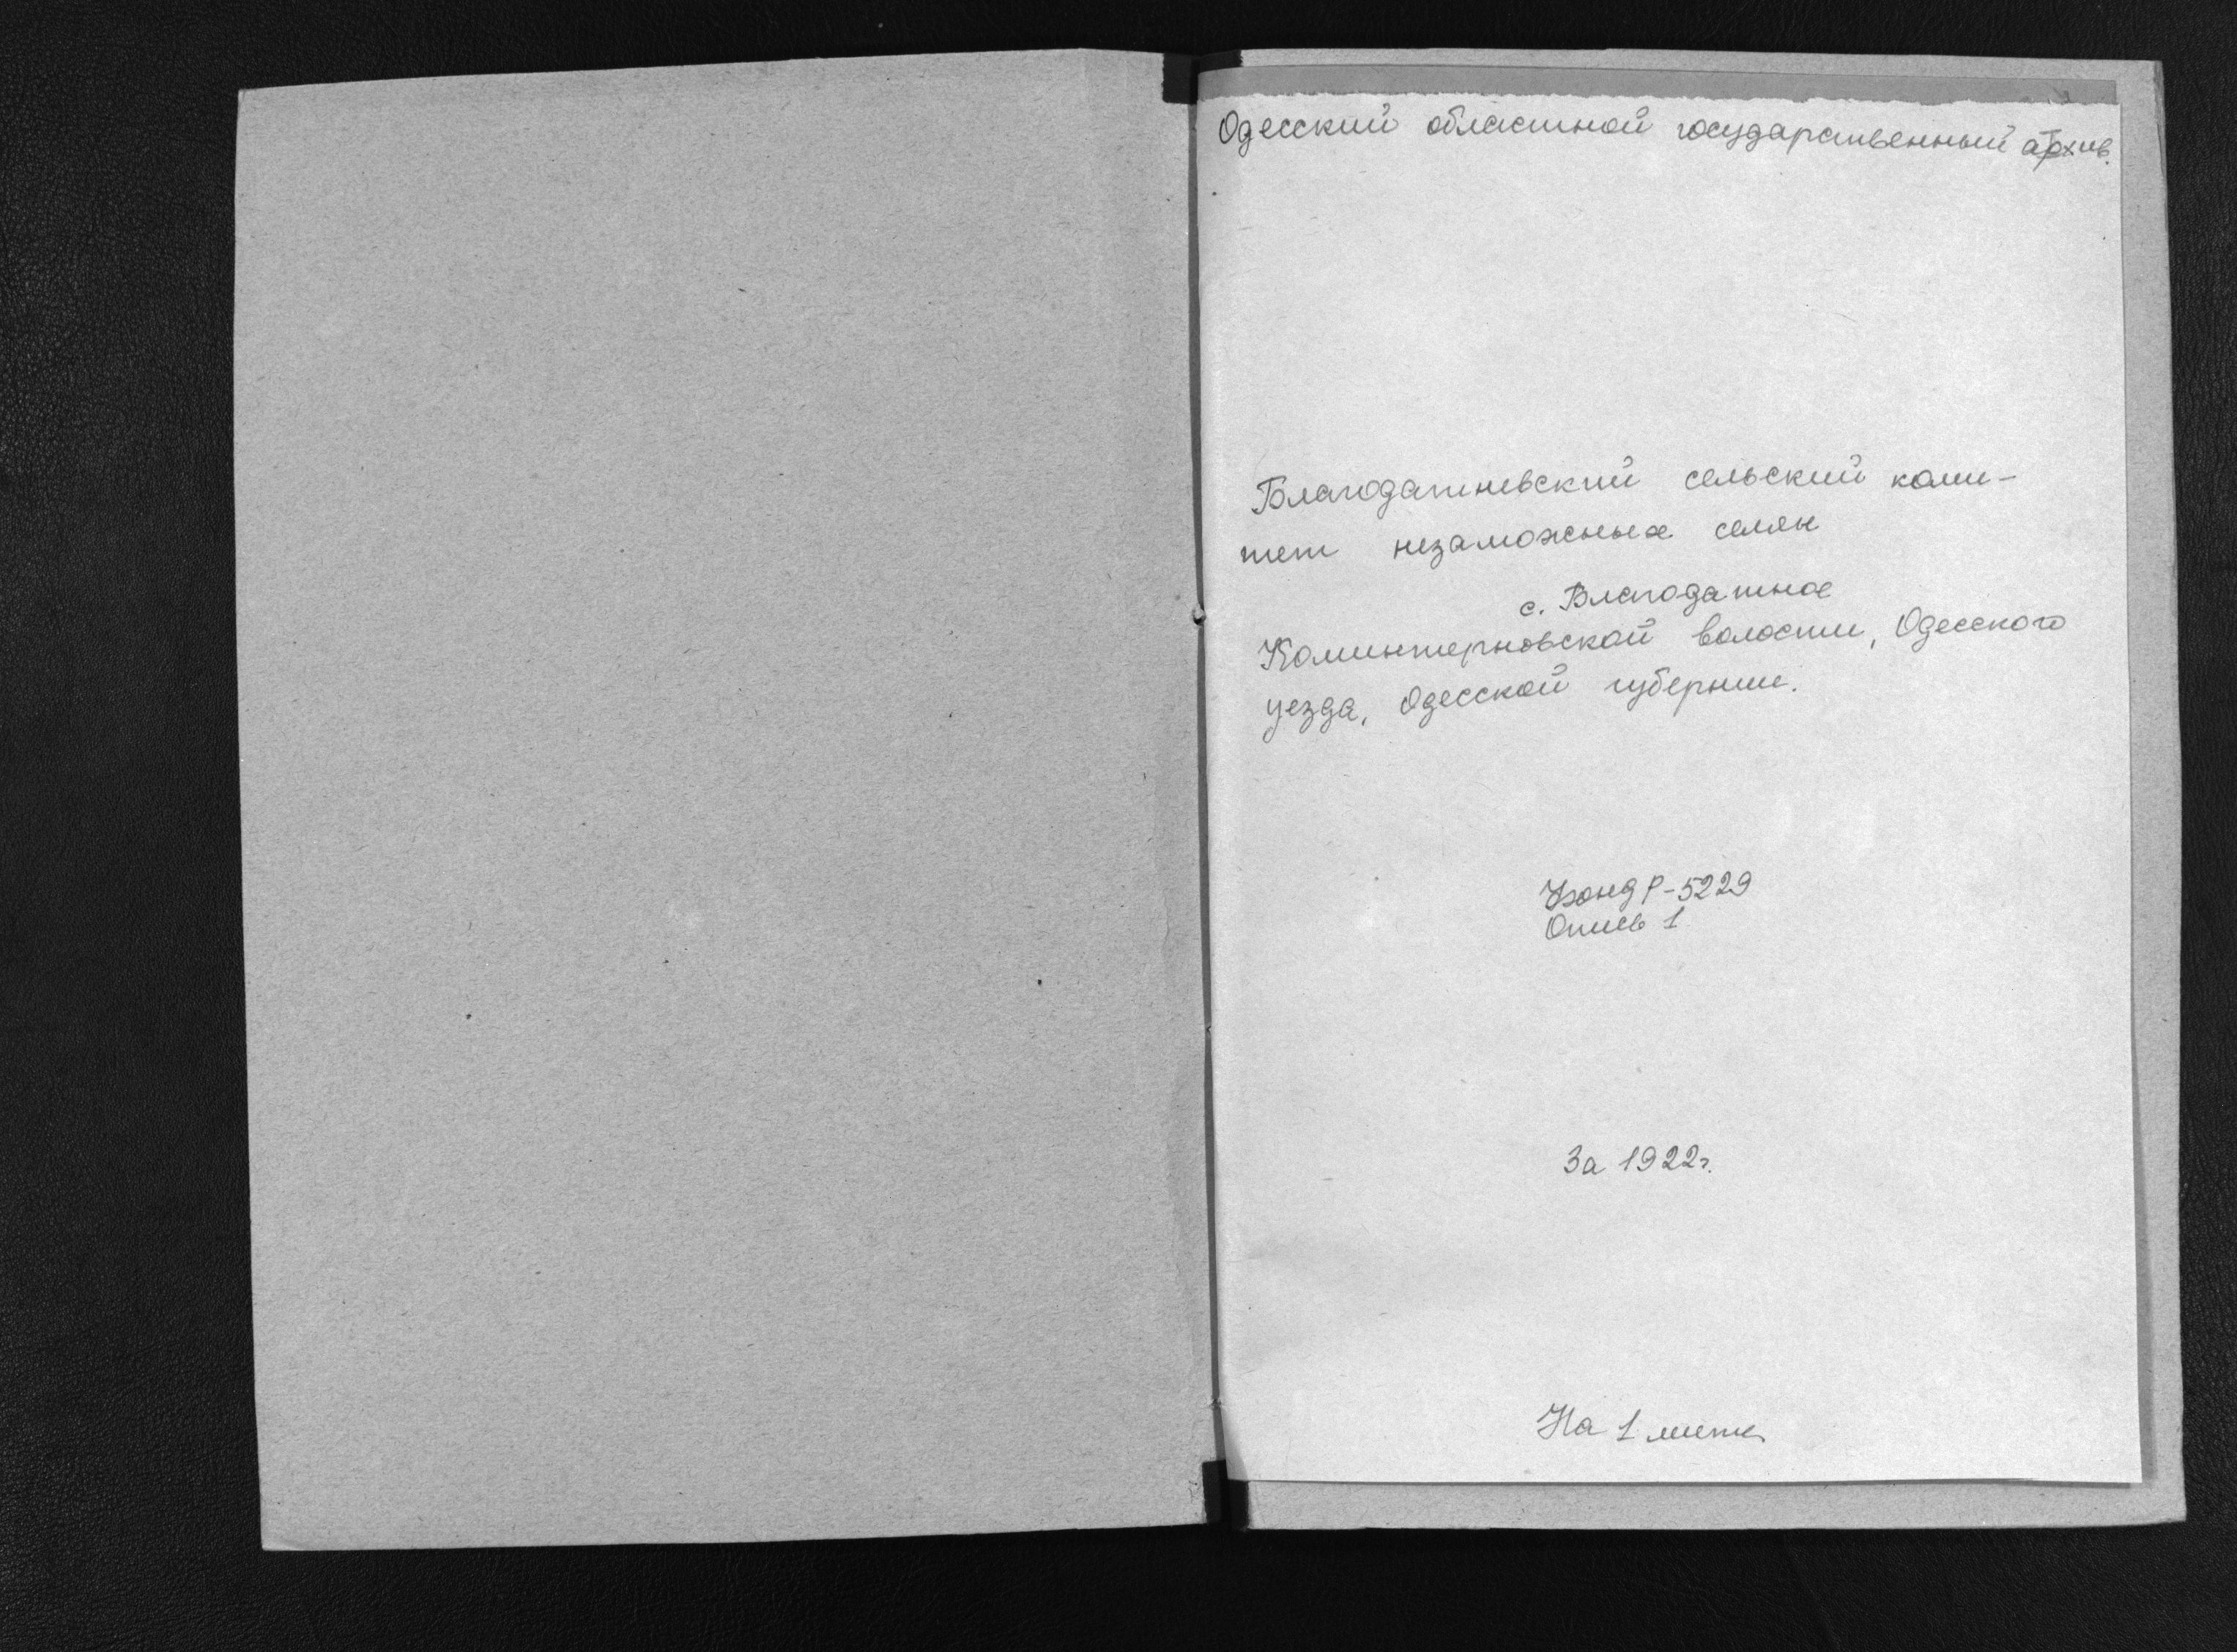 Одесский областной государственный архив.
Благодатневский сельский коми-
тет незаможных селян
с. Благодатное
Коминтерновской волости, Одесского
уезда, Одесской губернии.
Фонд Р-5229
Опись 1
За 1922г.
На 1 листе